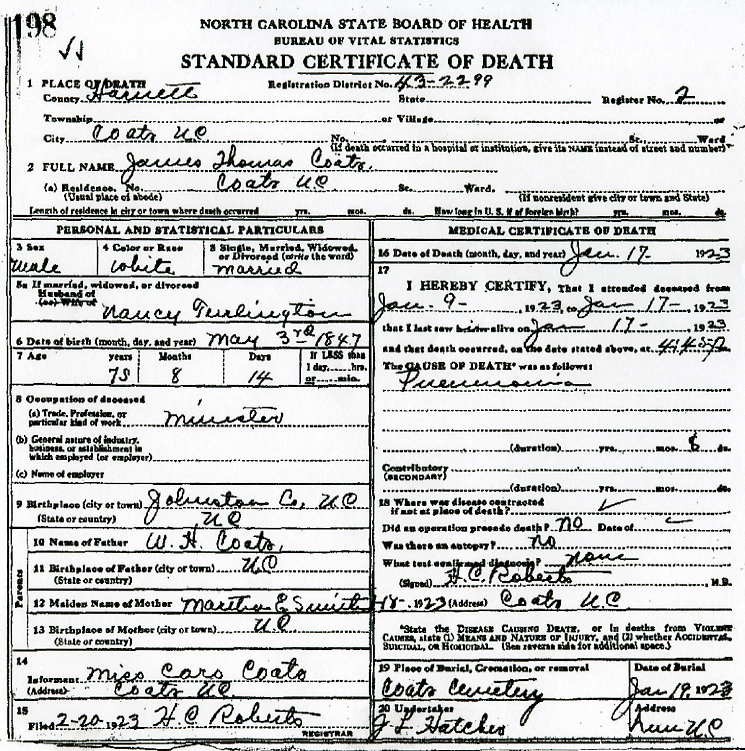 198
NORTH CAROLINA STATE BOARD OF HEALTH
BUREAU OF VITAL STATISTICS
STANDARD CERTIFICATE OF DEATH
1 PLACE OF DEATH Registration District No. 43-2299
County Harnett State Register No. 2
Township or Village
City Coats NC No. St. Ward
(If death occurred in a hospital or institution, give its NAME instead of street and number)
2 FULL NAME James Thomas Coats
(a) Residence, No. Coats NC St. Ward.
(Usual place of abode) (If nonresident give city or town and State)
Length of residence in city or town where death occurred yrs. mos. ds. How long in U. S. if of foreign birth? yrs. mos. ds.
PERSONAL AND STATISTICAL PARTICULARS
3 Sex 4 Color or Race 5 Single, Married, Widowed, or Divorced (write the word)
Male White Married
5a If married, widowed, or divorced
Husband of
(or) Wife of Nancy Turlington
6 Date of birth (month, day, and year) May 3rd 1847
7 Age years Months Days If LESS than
1 day, hrs.
75 8 14 or min.
8 Occupation of deceased
(a) Trade, Profession, or
particular kind of work Minister
(b) General nature of industry,
business, or establishment in
which employed (or employer)
(c) Name of employer
9 Birthplace (city or town) Johnston Co, NC
(State or country) NC
Parents
10 Name of Father W. H. Coats,
11 Birthplace of Father (city or town) NC
(State or country)
12 Maiden Name of Mother Martha E Smith
13 Birthplace of Mother (city or town) NC
(State or country)
14
Informant Miss Caro Coats
(Address) Coats NC
15
Filed 2-20, 1923 H C Roberts
REGISTRAR
MEDICAL CERTIFICATE OF DEATH
16 Date of Death (month, day, and year) Jan. 17- 1923
17
I HEREBY CERTIFY, That I attended deceased from
Jan. 9-, 1923, to Jan 17-, 1923
that I last saw him alive on Jan 17-, 1923
and that death occurred, on the date stated above, at 4:45P
The CAUSE OF DEATH* was as follows:
Pneumonia
(duration) yrs. mos. 8 ds.
Contributory
(SECONDARY)
(duration) yrs. mos. ds.
18 Where was disease contracted
if not at place of death?
Did an operation precede death? No Date of
Was there an autopsy? No
What test confirmed diagnosis? None
(Signed) H. C. Roberts M. D.
18-, 1923 (Address) Coats NC
*State the DISEASE CAUSING DEATH, or in deaths from VIOLENT
CAUSES, state (1) MEANS AND NATURE OF INJURY, and (2) whether ACCIDENTAL,
SUICIDAL, or HOMICIDAL. (See reverse side for additional space.)
19 Place of Burial, Cremation, or removal Date of Burial
Coats Cemetery Jan 19, 1923
20 Undertaker Address
J L Hatcher Dunn NC